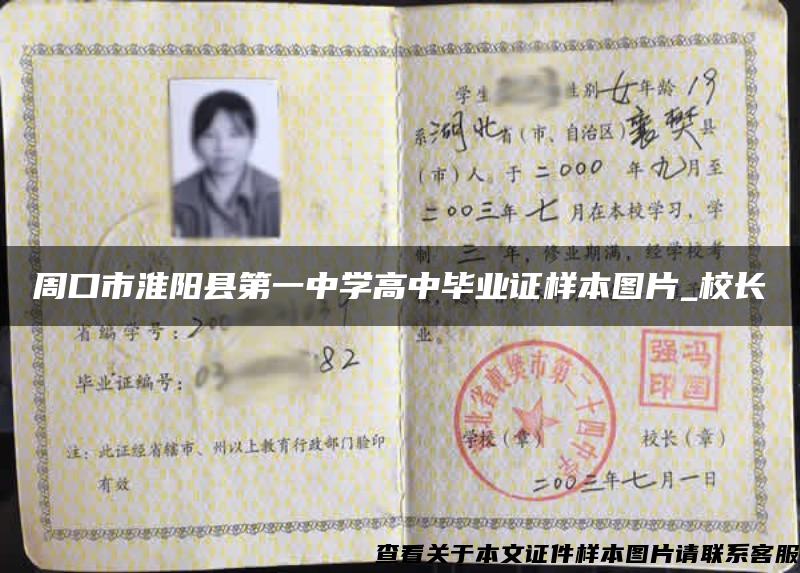 学生 性别女年龄19
系湖北省(市、自治区)襄樊县
(市)人。于二000年九月至
二00三年七月在本校学习，学
制三年，修业期满，经学校考
周口市淮阳县第一中学高中毕业证样本图片_校长
业。
省编学号：200
毕业证编号：03 82
注：此证经省辖市、州以上教育行政部门验印
有效
北省襄樊市第二十四中学
强冯
印国
学校（章） 校长（章）
二00三年七月一日
查看关于本文证件样本图片请联系客服